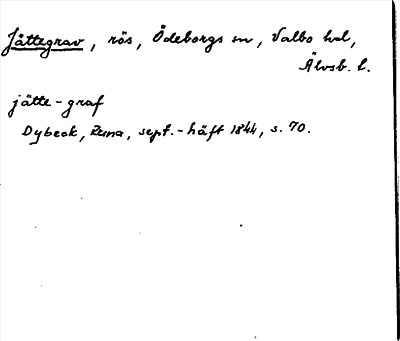 Jättegrav, rös, Ödeborgs sn, Valbo hd,
Älvsb. l.
jätte-graf
Dybeck, Runa, sept.-häft 1844, s. 70.